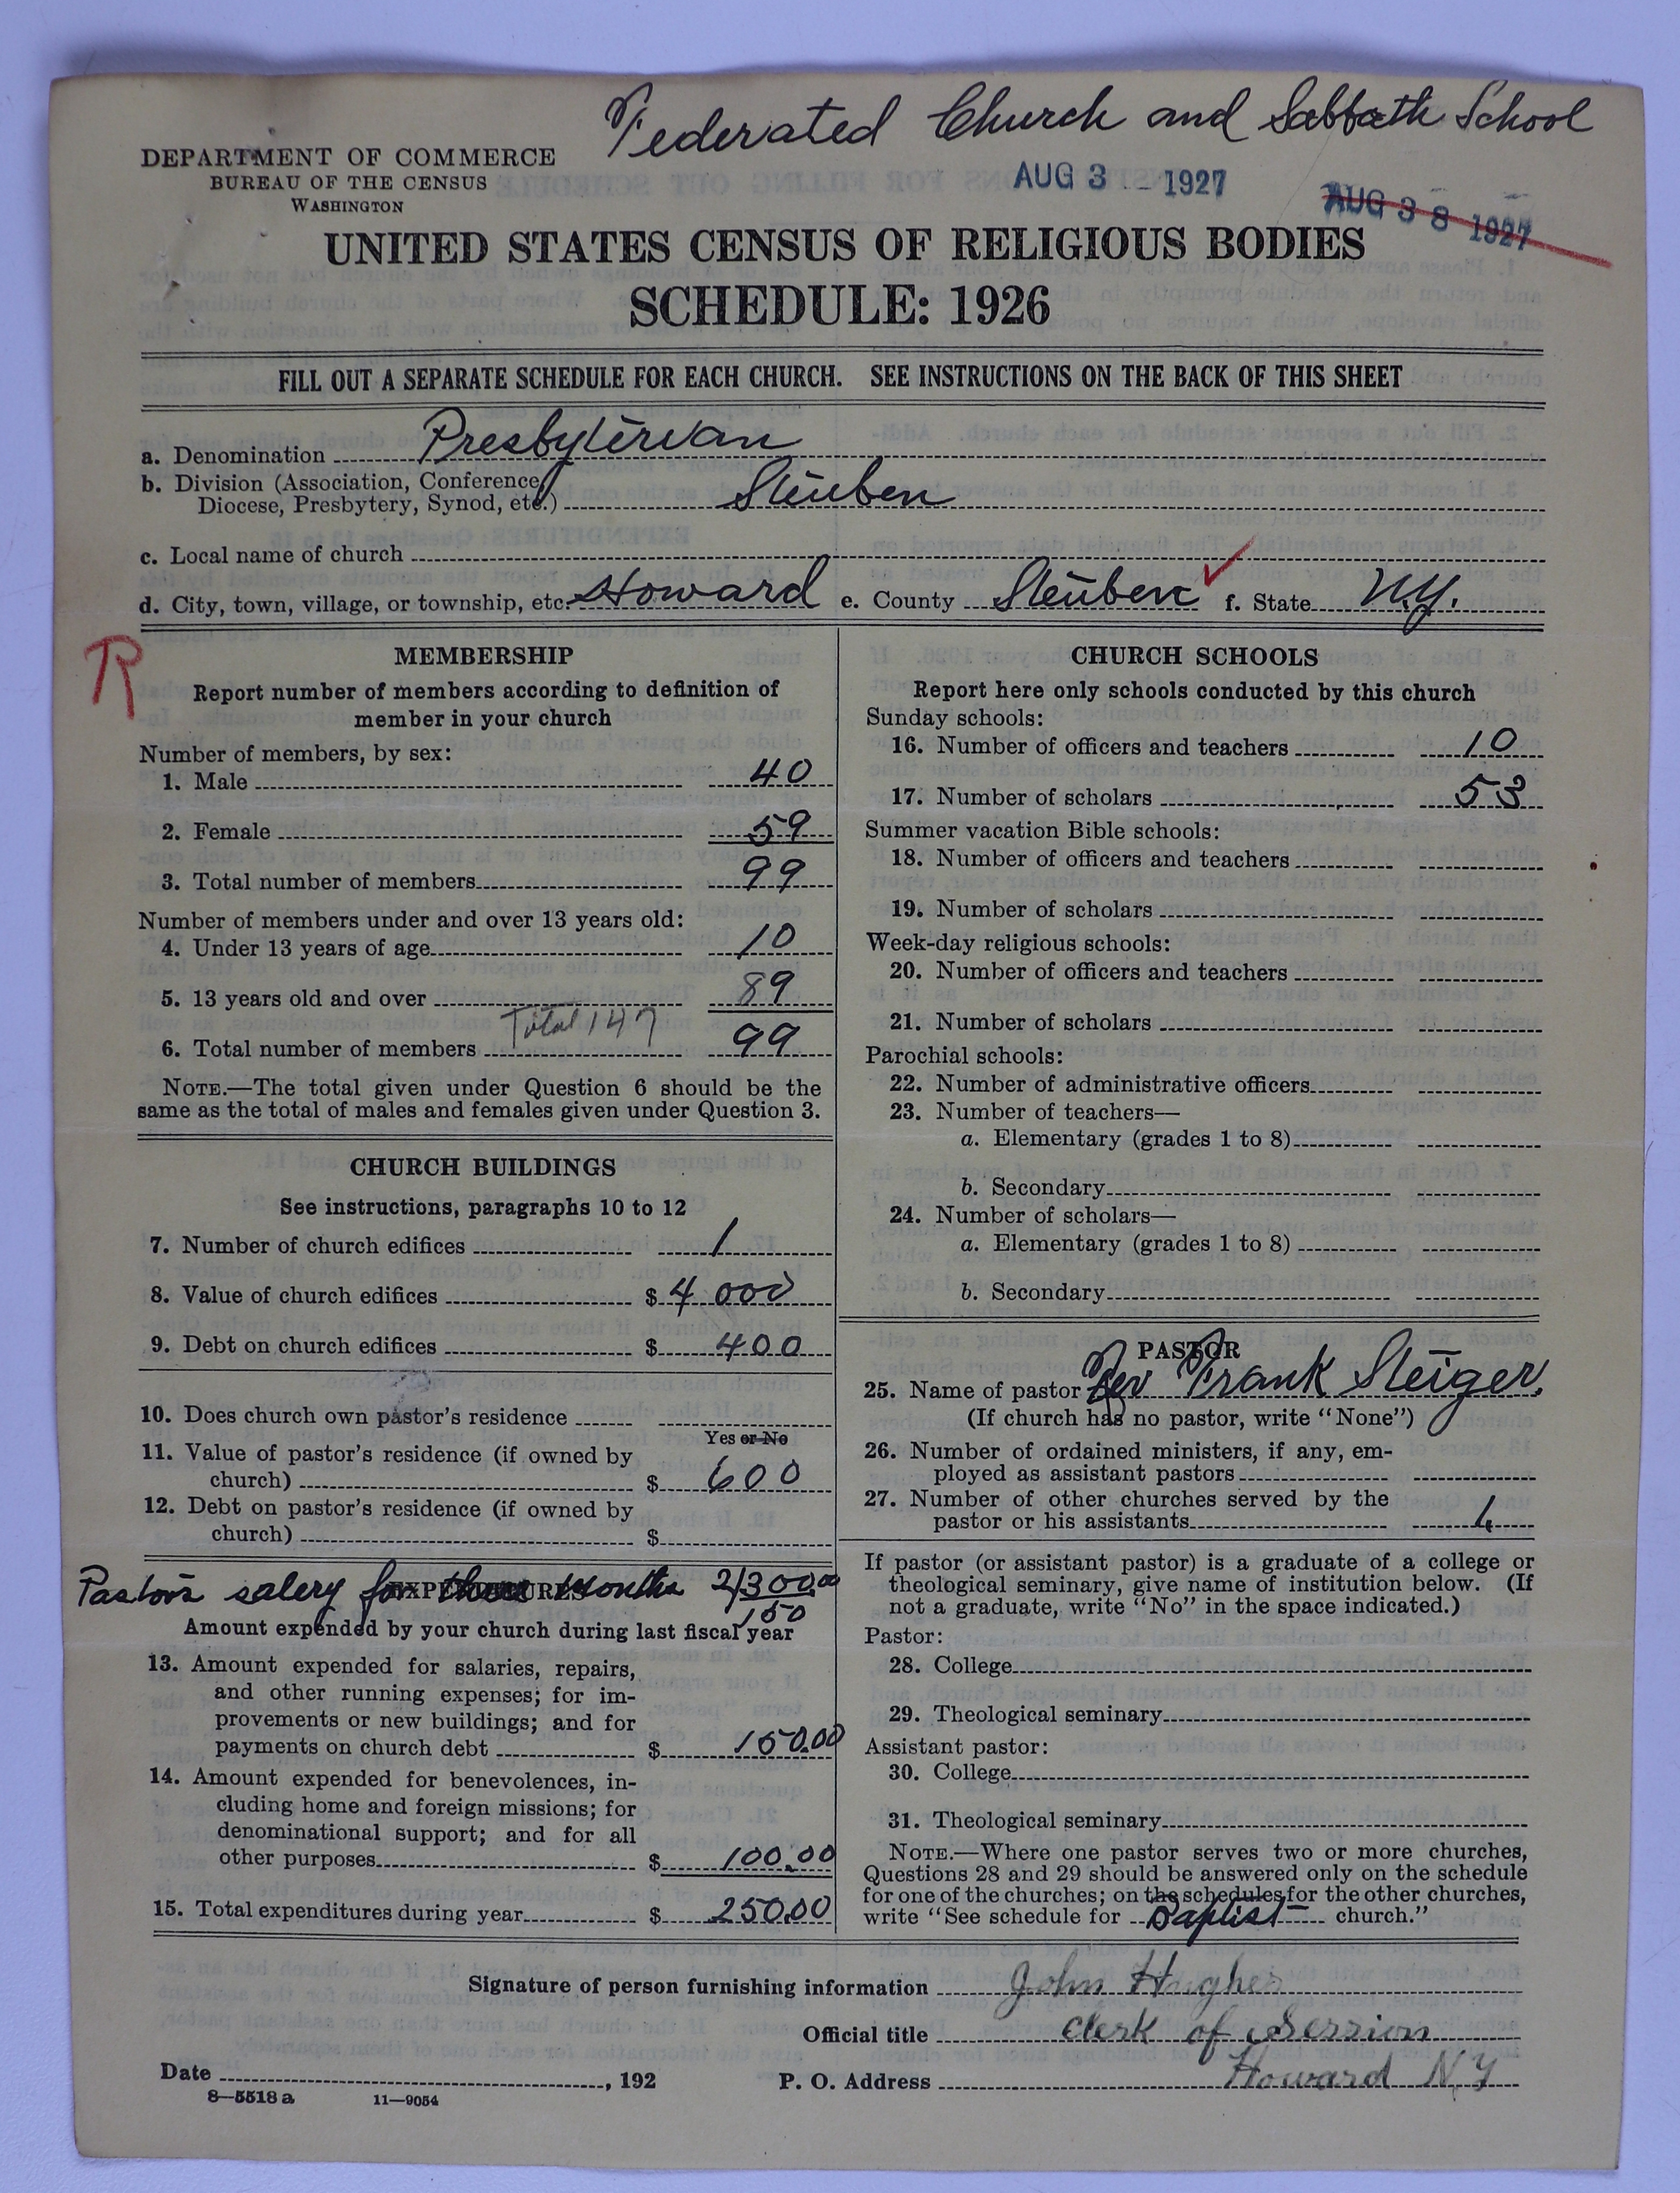 Federated Church and Sabbath School
DEPARTMENT OF COMMERCE
BUREAU OF THE CENSUS
WASHINGTON
AUG 3 1927
AUG 3 8 1927
UNITED STATES CENSUS OF RELIGIOUS BODIES
SCHEDULE: 1926
FILL OUT A SEPARATE SCHEDULE FOR EACH CHURCH. SEE INSTRUCTIONS ON THE BACK OF THIS SHEET
a. Denomination Presbyterian
b. Division (Association, Conference,
Diocese, Presbytery, Synod, etc.) Steuben
c. Local name of church
d. City, town, village, or township, etc. Howard e. County Steuben f. State N.Y.
R
MEMBERSHIP
Report number of members according to definition of
member in your church
Number of members, by sex:
1. Male 40
2. Female 59
3. Total number of members 99
Number of members under and over 13 years old:
4. Under 13 years of age 10
5. 13 years old and over 89
Total 147
6. Total number of members 99
NOTE.—The total given under Question 6 should be the
same as the total of males and females given under Question 3.
CHURCH BUILDINGS
See instructions, paragraphs 10 to 12
7. Number of church edifices 1
8. Value of church edifices $ 4 000
9. Debt on church edifices $ 400
10. Does church own pastor's residence
Yes or No
11. Value of pastor's residence (if owned by
church) $ 600
12. Debt on pastor's residence (if owned by
church) $
Pastors salery for three months 2/300.00
EXPENDITURES
150
Amount expended by your church during last fiscal year
13. Amount expended for salaries, repairs,
and other running expenses; for im-
provements or new buildings; and for
payments on church debt $ 150.00
14. Amount expended for benevolences, in-
cluding home and foreign missions; for
denominational support; and for all
other purposes $ 100.00
15. Total expenditures during year $ 250.00
CHURCH SCHOOLS
Report here only schools conducted by this church
Sunday schools:
16. Number of officers and teachers 10
17. Number of scholars 53
Summer vacation Bible schools:
18. Number of officers and teachers
19. Number of scholars
Week-day religious schools:
20. Number of officers and teachers
21. Number of scholars
Parochial schools:
22. Number of administrative officers
23. Number of teachers—
a. Elementary (grades 1 to 8)
b. Secondary
24. Number of scholars—
a. Elementary (grades 1 to 8)
b. Secondary
PASTOR
25. Name of pastor Rev Frank Steiger,
(If church has no pastor, write "None")
26. Number of ordained ministers, if any, em-
ployed as assistant pastors
27. Number of other churches served by the
pastor or his assistants 1
If pastor (or assistant pastor) is a graduate of a college or
theological seminary, give name of institution below. (If
not a graduate, write "No" in the space indicated.)
Pastor:
28. College
29. Theological seminary
Assistant pastor:
30. College
31. Theological seminary
NOTE.—Where one pastor serves two or more churches,
Questions 28 and 29 should be answered only on the schedule
for one of the churches; on the schedules for the other churches,
write "See schedule for Baptist church."
Signature of person furnishing information John Hughes
Official title Clerk of Session
Date , 192 P. O. Address Howard N.Y
8—5518 a 11—9054